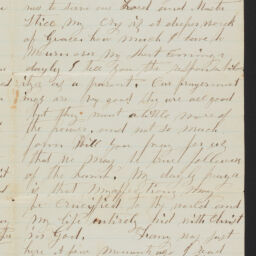 me to serve our Lord and Master
Still my cry is a deeper work
of Grace. how much I have to
Mourn over my short comings
dayly I tell you the responsibility
as a parent. Our prayer meet
ings are very good they are all good
but they want a little more of
the power. and not so much
form Will you pray for us
that we may be true followers
of the Lamb. My dayly prayer
is that my affections may
be crucified to the world and
my life entirely hid with Christ
in God. Fanny was just
here a few minutes ago I read